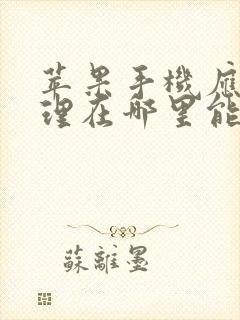 苹果手機應
理在哪里能
蘇離墨